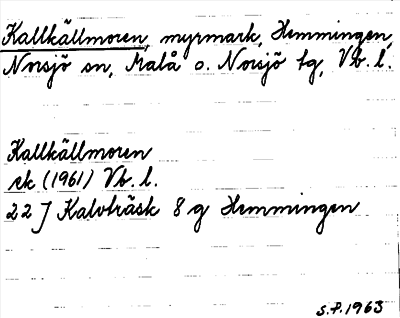 Kallkällmoren, myrmark, Hemmingen,
Norsjö sn, Malå o. Norsjö tg, Vb. l.
Kallkällmoren
ek (1961) Vb. l.
22 J Kalvträsk 8 g Hemmingen
S.P. 1963